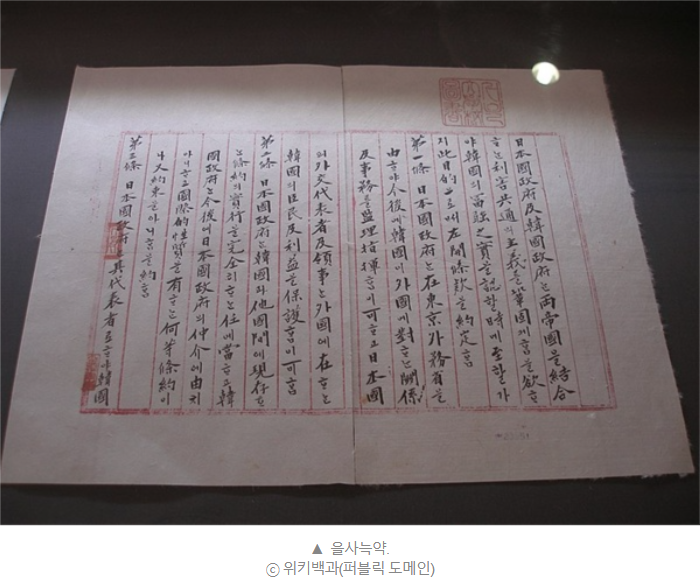 日本國政府及韓國政府는 兩帝國을 結合
ᄒᆞ는 利害共通의 主義를 鞏固케 ᄒᆞᆷ을 欲ᄒᆞ
야 韓國의 富强之實을 認ᄒᆞᆯ 時에 至ᄒᆞᆯ가
지 此目的으로써 左開條款을 約定ᄒᆞᆷ
第一條 日本國政府는 在東京外務省을
由ᄒᆞ야 今後에 韓國이 外國에 對ᄒᆞ는 關係
及事務를 監理指揮ᄒᆞᆷ이 可ᄒᆞ고 日本國
의 外交代表者及領事는 外國에 在ᄒᆞ는
韓國의 臣民及利益을 保護ᄒᆞᆷ이 可ᄒᆞᆷ
第二條 日本國政府는 韓國과 他國間에 現存ᄒᆞ
는 條約의 實行을 完全히 ᄒᆞ는 任에 當ᄒᆞ고 韓
國政府는 今後에 日本國政府의 仲介에 由치
아니ᄒᆞ고 國際的性質을 有ᄒᆞ는 何等條約이
나 又約束을 아니ᄒᆞᆷ을 約ᄒᆞᆷ
第三條 日本國政府는 其代表者로ᄒᆞ야 韓國
▲ 을사늑약.
ⓒ 위키백과(퍼블릭 도메인)